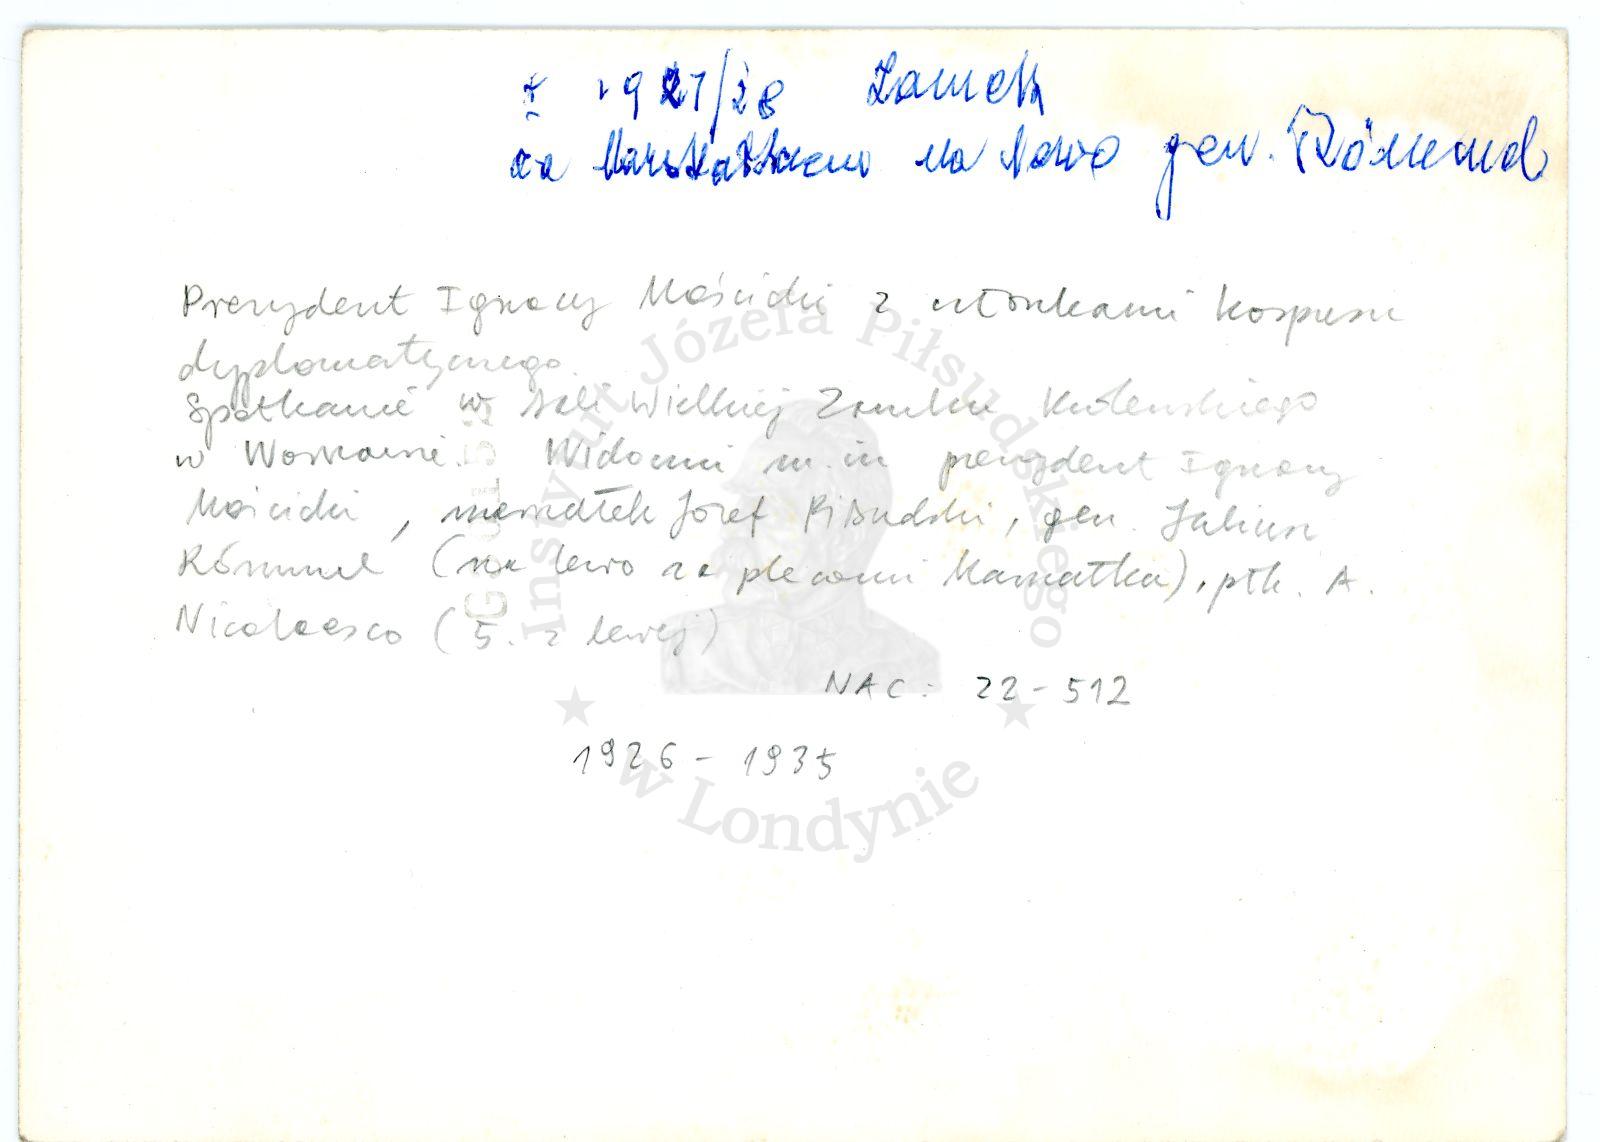 1927/28 Zamek
za Marszałkiem na lewo gen. Römmel
Prezydent Ignacy Mościcki z członkami korpusu
dyplomatycznego.
Spotkanie w Sali Wielkiej Zamku Królewskiego
w Warszawie. Widoczni m.in prezydent Ignacy
Mościcki, marszałek Józef Piłsudski, gen. Juliusz
Rómmel (na lewo za plecami Marszałka), płk. A.
Nicolaesco (5. z lewej)
NAC: 22-512
1926-1935
Instytut Józefa Piłsudskiego
w Londynie